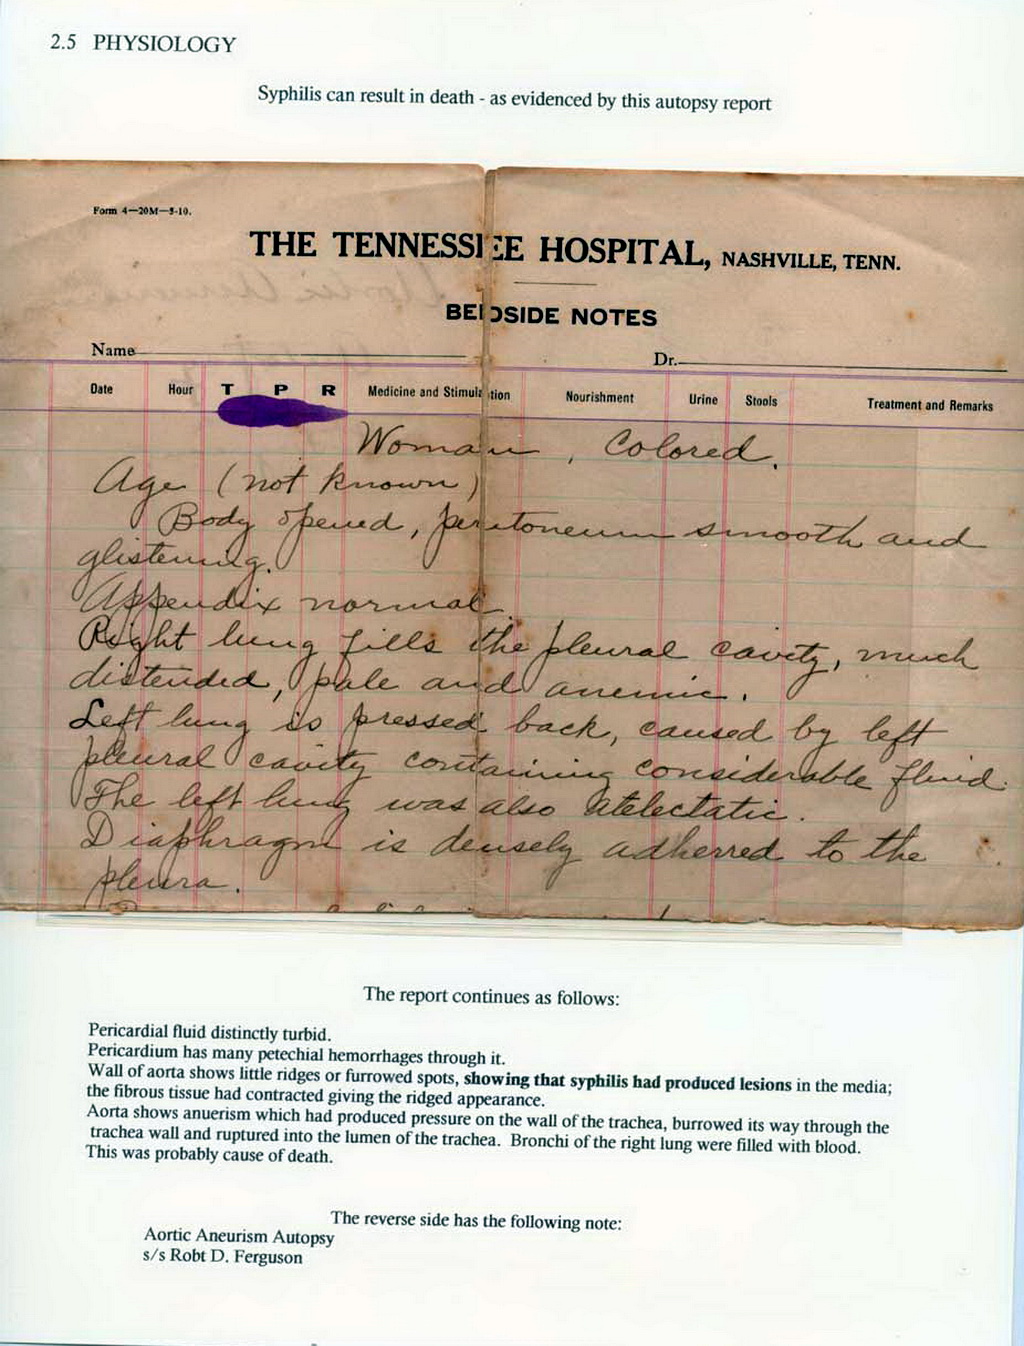 2.5 PHYSIOLOGY
Syphilis can result in death - as evidenced by this autopsy report
Form 4—20M—5-10.
THE TENNESSEE HOSPITAL, NASHVILLE, TENN.
BEDSIDE NOTES
Name Dr.
Date Hour T P R Medicine and Stimulation Nourishment Urine Stools Treatment and Remarks
Woman, Colored.
Age (not known)
Body opened, peritoneum smooth and
glistening.
Appendix normal.
Right lung fills the pleural cavity, much
distended, pale and anemic.
Left lung is pressed back, caused by left
pleural cavity containing considerable fluid.
The left lung was also atelectatic.
Diaphragm is densely adherred to the
pleura.
The report continues as follows:
Pericardial fluid distinctly turbid.
Pericardium has many petechial hemorrhages through it.
Wall of aorta shows little ridges or furrowed spots, showing that syphilis had produced lesions in the media;
the fibrous tissue had contracted giving the ridged appearance.
Aorta shows anuerism which had produced pressure on the wall of the trachea, burrowed its way through the
trachea wall and ruptured into the lumen of the trachea. Bronchi of the right lung were filled with blood.
This was probably cause of death.
The reverse side has the following note:
Aortic Aneurism Autopsy
s/s Robt D. Ferguson